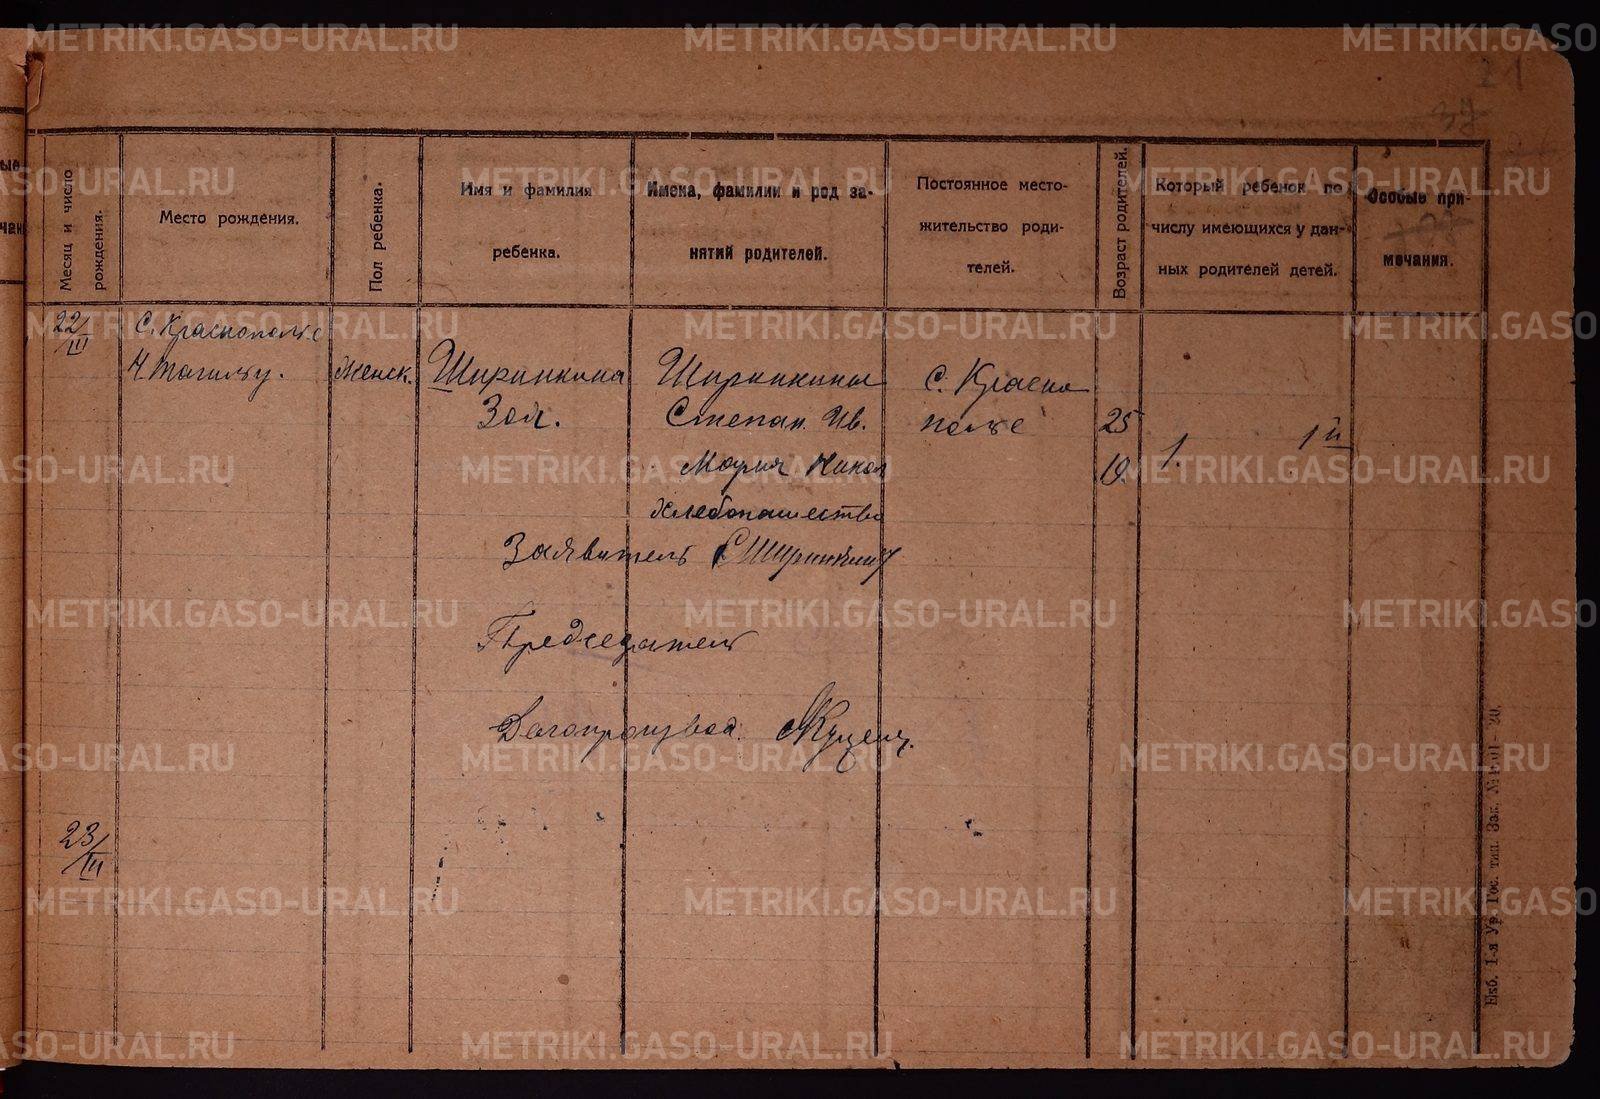 METRIKI.GASO-URAL.RU
21
37
Месяц и число рождения.
Место рождения.
Пол ребенка.
Имя и фамилия
ребенка.
Имена, фамилии и род за-
нятий родителей.
Постоянное место-
жительство роди-
телей.
Возраст родителей.
Который ребенок по
числу имеющихся у дан-
ных родителей детей.
Особые при-
мечания.
22/III
С. Краснополье
Н. Тагильу.
Женск.
Ширинкина
Зоя.
Ширинкины
Степан. Ив.
Мария Никол
Хлебопашество
С. Красно
полье
25
19.
1.
1й
Заявитель С Ширинкин
Председатель
Делопроизвод.
23/III
Екб. 1-я Ур. Гос. тип. Зак.